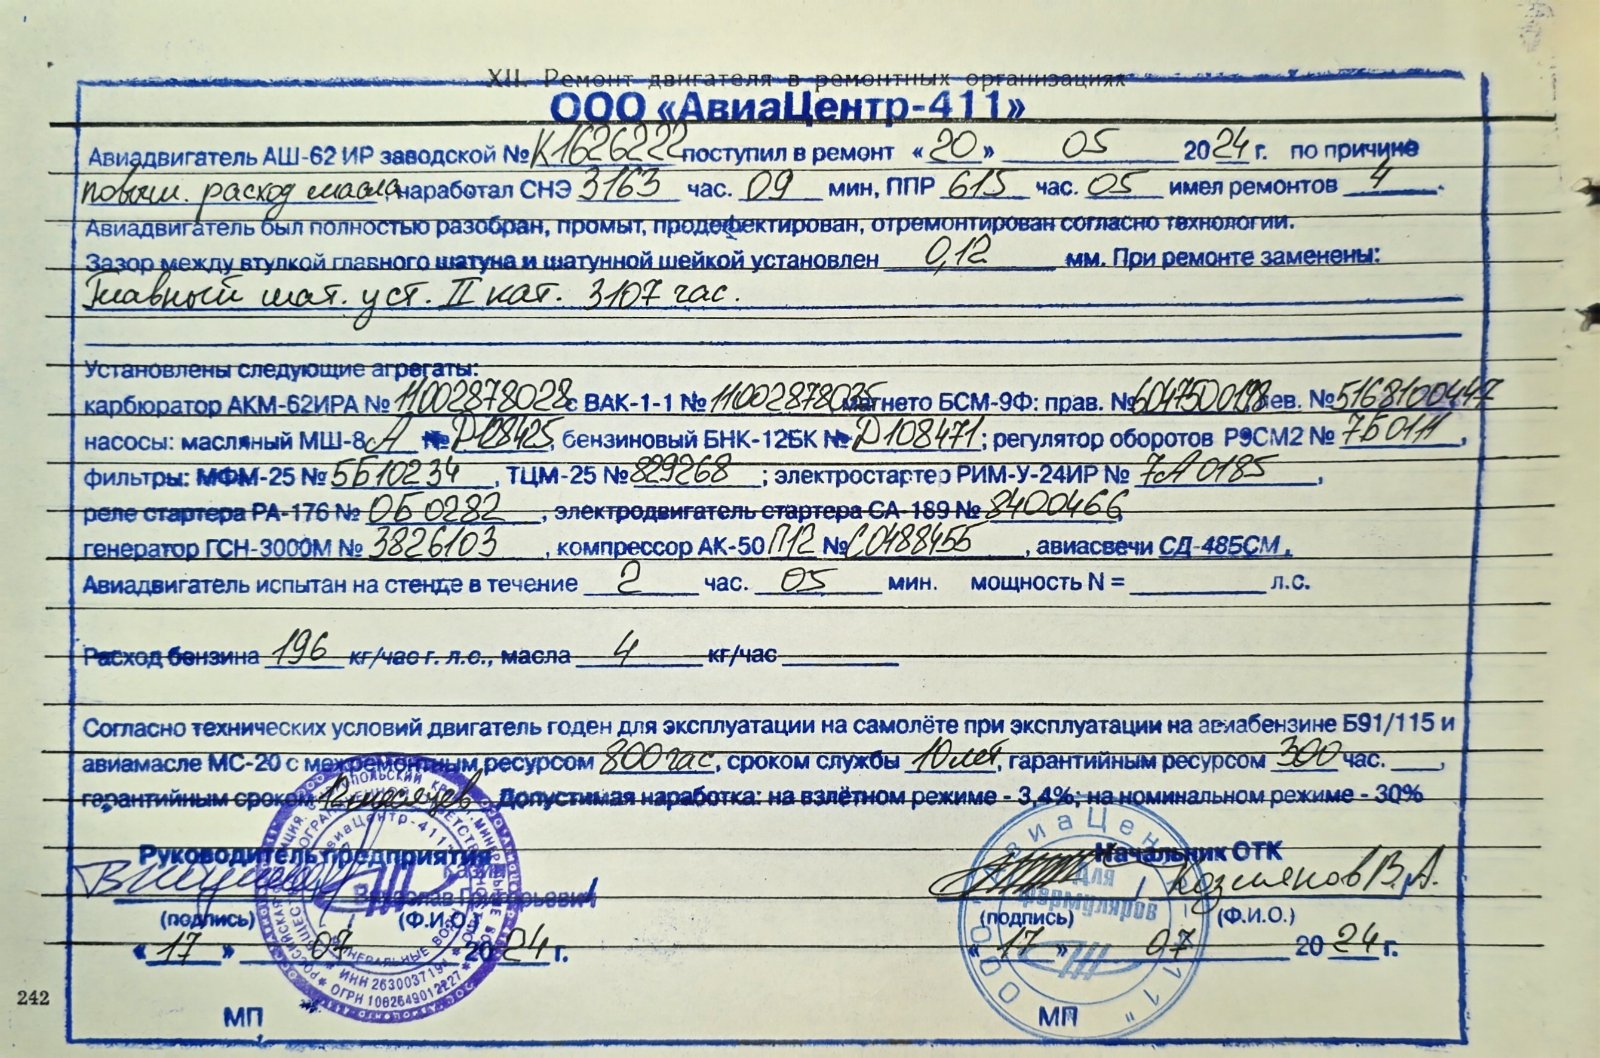 XII. Ремонт двигателя в ремонтных организациях
ООО «АвиаЦентр-411»
Авиадвигатель АШ-62 ИР заводской № К1626222 поступил в ремонт «20» 05 2024 г. по причине
повыш. расход масла, наработал СНЭ 3163 час. 09 мин, ППР 615 час. 05 имел ремонтов 4.
Авиадвигатель был полностью разобран, промыт, продефектирован, отремонтирован согласно технологии.
Зазор между втулкой главного шатуна и шатунной шейкой установлен 0,12 мм. При ремонте заменены:
Главный шат. уст. II кат. 3107 час.
Установлены следующие агрегаты:
карбюратор АКМ-62ИРА № 11002878028 с ВАК-1-1 № 11002878035 магнето БСМ-9Ф: прав. № лев. №
насосы: масляный МШ-8 А № Д128425, бензиновый БНК-12БК № Д108471; регулятор оборотов Р9СМ2 №
фильтры: МФМ-25 № 5Б10234, ТЦМ-25 № 829268; электростартер РИМ-У-24ИР № 7А0185,
реле стартера РА-176 № 0Б0282, электродвигатель стартера СА-189 № 8400466
генератор ГСН-3000М № 3826103, компрессор АК-50 П12 № С0488455, авиасвечи СД-485СМ.
Авиадвигатель испытан на стенде в течение 2 час. 05 мин. мощность N = л.с.
Расход бензина 196 кг/час г. л.с., масла 4 кг/час
Согласно технических условий двигатель годен для эксплуатации на самолёте при эксплуатации на авиабензине Б91/115 и
авиамасле МС-20 с межремонтным ресурсом 800 час, сроком службы 10 лет, гарантийным ресурсом 300 час.,
гарантийным сроком 12 месяцев. Допустимая наработка: на взлётном режиме - 3,4%; на номинальном режиме - 30%
Руководитель предприятия Начальник ОТК
Григорьевич Козмяков В.А.
(подпись) (Ф.И.О.) (подпись) (Ф.И.О.)
«17» 07 2024 г. «17» 07 2024 г.
МП МП
242
АвиаЦентр-411
МИНЕРАЛЬНЫЕ ВОДЫ
ИНН 2630037194
ОГРН 1062649012227
ООО "АвиаЦентр-411"
Для формуляров